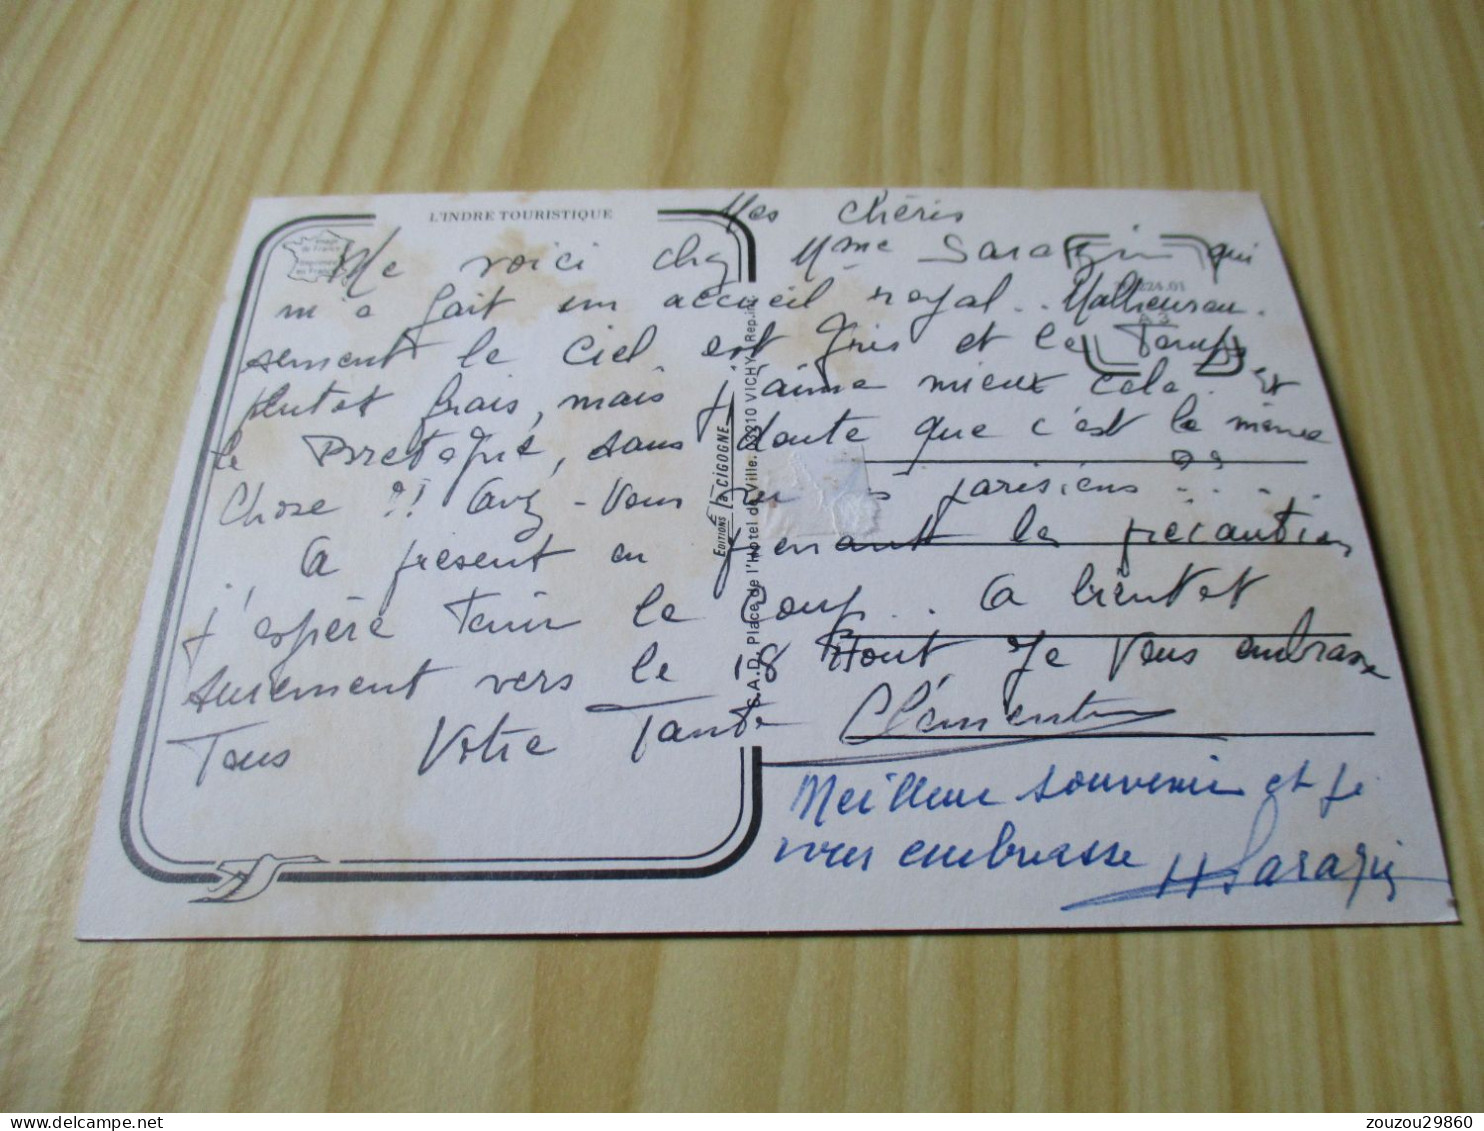 L'INDRE TOURISTIQUE
Mes chéris
Me voici chez Mme Sarazin qui
m'a fait un accueil royal.. Malheureu.
sement le ciel est gris et le Temps
plutot frais, mais j'aime mieux cela. Et
la Bretagne, sans doute que c'est la même
chose ?! Avez-vous vu les parisiens ....
A présent en prenant des précautions
j'espère tenir le coup.. A bientot
surement vers le 18 Aout Je vous embrasse
Tous Votre Tante Clémentine
Meilleur souvenir et je
vous embrasse H Sarazin
EDITIONS la CIGOGNE
S.A.D. Place de l'Hôtel de Ville. 03210 VICHY Rep. int.
zouzou29860